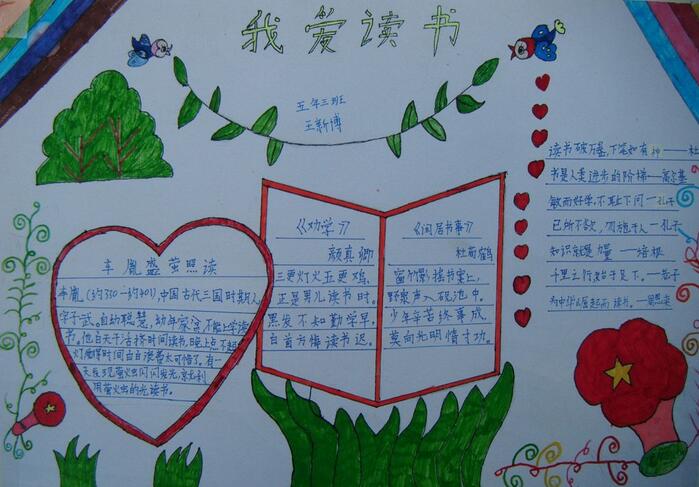 我爱读书
五年三班
王新博
车胤盛萤照读
车胤(约330-约401),中国古代三国时期人
字子武。自幼聪慧,幼年家贫,不能上学读
书。他白天干活挤时间读书,晚上点不起
灯,觉得时间白白浪费太可惜了。有一
天在发现萤火虫闪闪发光,就利
用萤火虫的光读书。
《劝学》
颜真卿
三更灯火五更鸡,
正是男儿读书时。
黑发不知勤学早,
白首方悔读书迟。
《闲居书事》
杜荀鹤
窗竹影摇书案上,
野泉声入砚池中。
少年辛苦终事成,
莫向光明惰寸功。
读书破万卷,下笔如有神——杜
书是人类进步的阶梯——高尔基
敏而好学,不耻下问——孔子
己所不欲,勿施于人——孔子
知识就是力量——培根
千里之行始于足下。——老子
为中华之崛起而读书。——周恩来